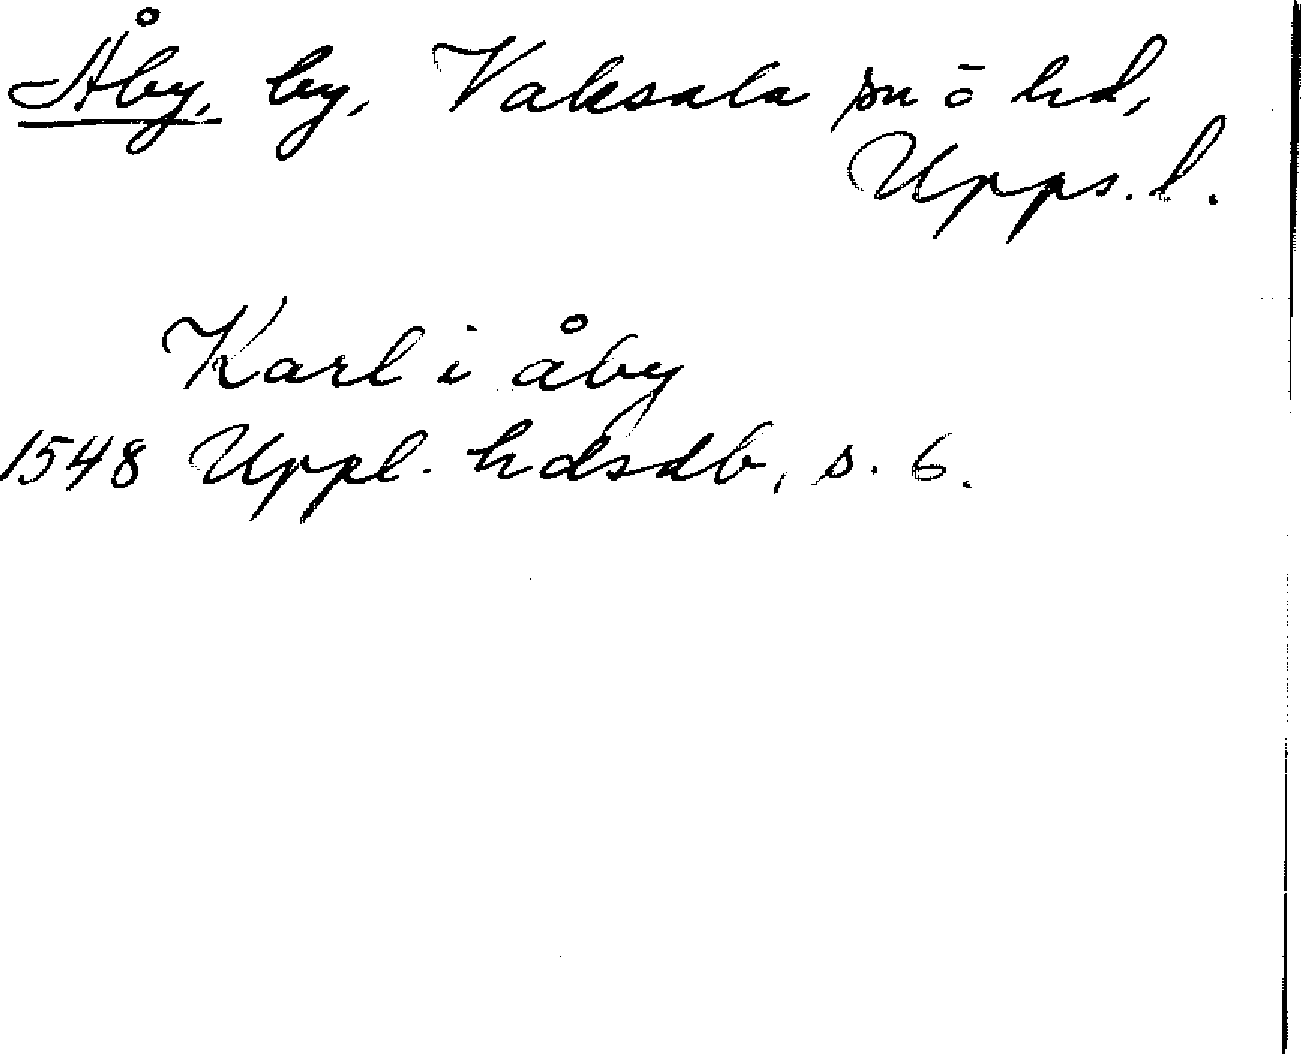 Åby, by, Vaksala sn ō hd,
Upps. l.
Karl i åby
1548 Uppl. hdsdb, s. 6.